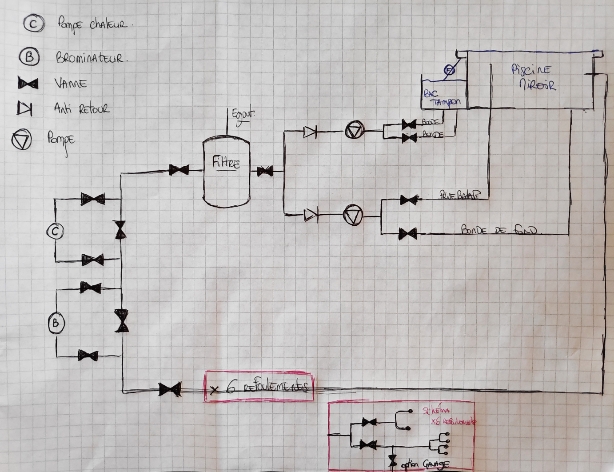 C Pompe chaleur.
B BROMINATEUR.
VANNE
Anti RETOUR
Pompe
Egout
FILTRE
BAC
TAMPON
PISCINE
MIROIR
BONDE
BONDE
BONDE DE FOND
C
B
x 6 REFOULEMENTS
SCHÉMA
option